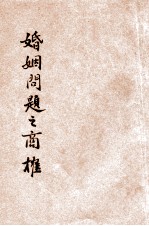 婚姻問題之商榷